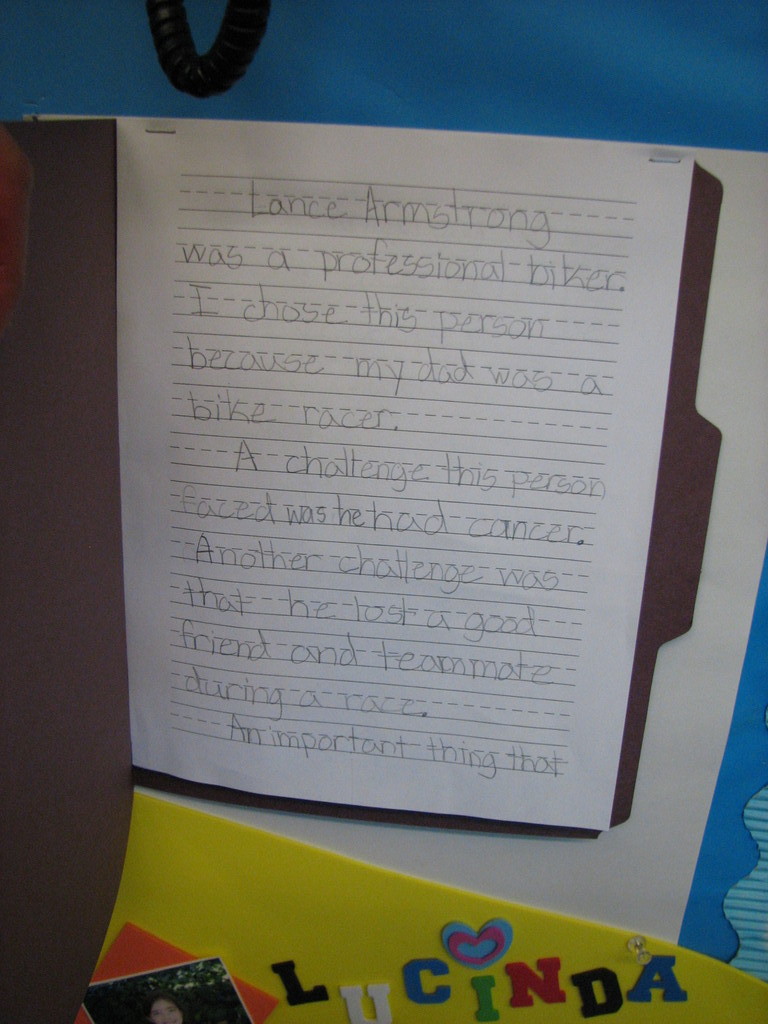 Lance Armstrong
was a professional biker.
I chose this person
because my dad was a
bike racer.
A challenge this person
faced was he had cancer.
Another challenge was
that he lost a good
friend and teammate
during a race.
An important thing that
LUCINDA